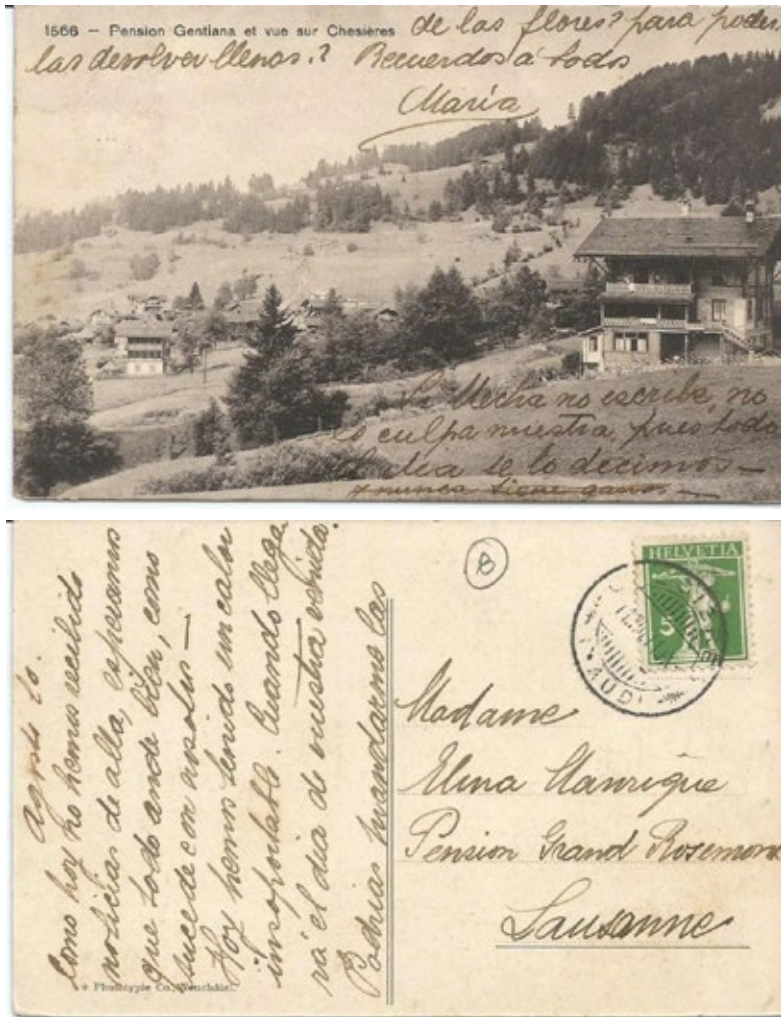 1566 – Pension Gentiana et vue sur Chesières
de las flores? para poder
las devolver llenas.? Recuerdos á todos
María
Si Mecha no escribe, no
es culpa nuestra, pues todo
el dia se lo decimos –
y nunca tiene ganas –
Agosto 10.
Como hoy no hemos recibido
noticias de alla, esperamos
que todo ande bien, como
sucede con nosotros –
Hoy hemos tenido un calor
insoportable. Cuando llega
rá el dia de vuestra venida?
Podrias mandarme las
8
HELVETIA
5
Madame
Elina Manrique
Pension Grand Rosemont
Lausanne
Phototypie Co., Neuchâtel.